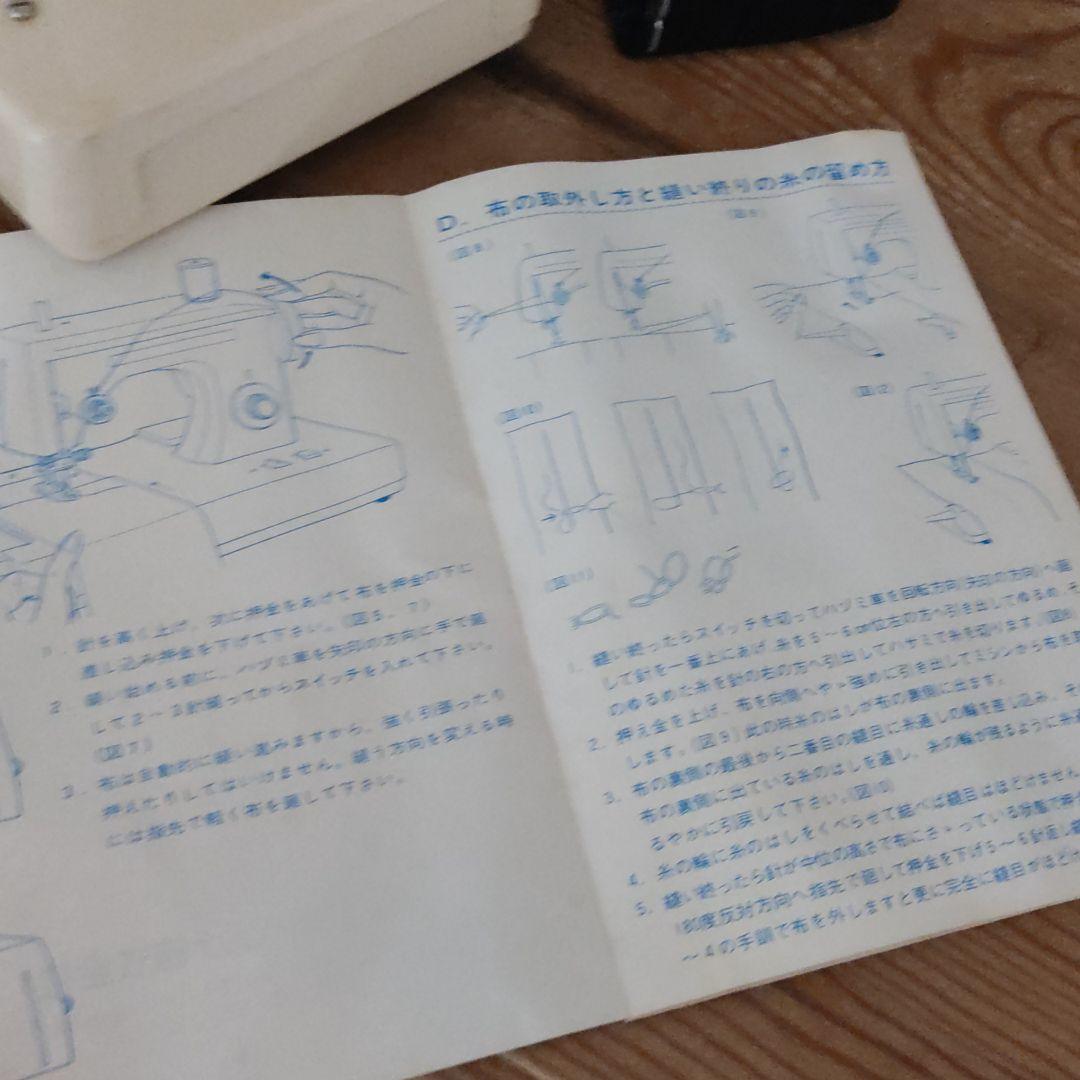 1. 針を高く上げ、次に押金をあげて布を押金の下に
差し込み押金を下げて下さい。(図5、7)
2. 縫い始める前に、ハヅミ車を矢印の方向に手で廻
して2～3針縫ってからスイッチを入れて下さい。
(図7)
3. 布は自動的に縫い進みますから、強く引張ったり
押えたりしてはいけません。縫う方向を変える時
には指先で軽く布を廻して下さい。
D. 布の取外し方と縫い終りの糸の留め方
(図8)
(図9)
(図10)
(図12)
(図11)
1. 縫い終ったらスイッチを切ってハヅミ車を回転方向(矢印の方向)へ廻
して針を一番上にあげ、糸を5～6cm位左の方へ引き出してゆるめ、そ
のゆるめた糸を針の右の方へ引出してハサミで糸を切ります。(図8)
2. 押え金を上げ、布を向側へやゝ強めに引き出してミシンから布を
します。(図9)此の時糸のはしが布の裏側に出ます。
3. 布の裏側の最後から二番目の縫目に糸通しの輪を差し込み、そ
布の裏側に出ている糸のはしを通し、糸の輪が残るように糸
るやかに引戻して下さい。(図10)
4. 糸の輪に糸のはしをくぐらせて結べば縫目はほどけません。
5. 縫い終ったら針が中位の高さで布にさゝっている状態で押
180度反対方向へ指先で廻して押金を下げ5～6針返し
～4の手順で布を外しますと更に完全に縫目がほどけ